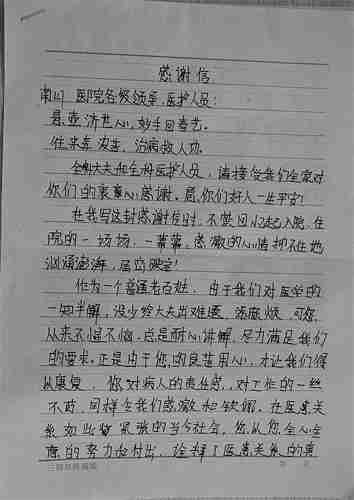 感谢信
南口医院各级领导、医护人员:
悬壶济世心,妙手回春艺。
任来奔安差,治病救人功。
全勤大夫和全科医护人员,请接受我们全家对
你们的衷意心感谢。愿你们好人一生平安!
在我写这封感谢信时,不禁回忆起入院、住
院的一场场,一幕幕。感激的心情抑不住地
汹涌澎湃,
作为一个普通老百姓,由于我们对医学的
一知半解,没少给大夫出难题、添麻烦,可您
从来不恼不恼,总是耐心讲解,尽力满足我们
的要求。正是由于您的良苦用心,才让我们得
以康复。你对病人的责任感,对工作的一丝
不苟,同样令我们感激和钦佩。在医患关
系如此紧张的当今社会,您从您全心全
意的努力和付出,诠释了医患关系的真